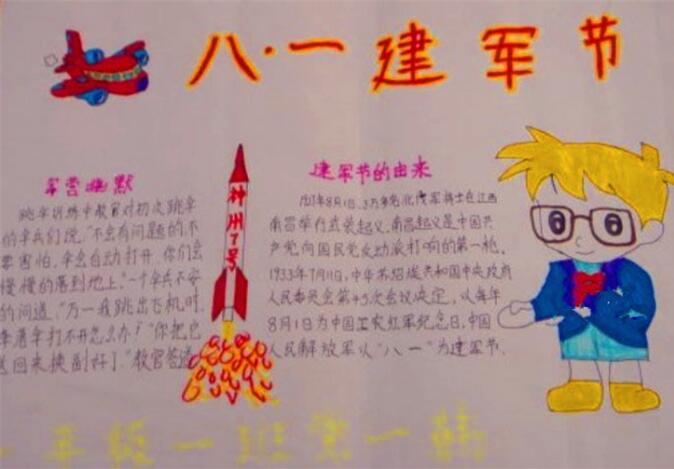 八·一建军节
军营幽默
跳伞训练中教官对初次跳伞
的伞兵们说，"不会有问题的不
要害怕，伞会自动打开，你们会
慢慢的落到地上。"一个伞兵不安
的问道，"万一我跳出飞机时，
降落伞打不开怎么办？"你把它
送回来换副好了。"教官答道
神州7号
建军节的由来
8月1日，3万多名北伐军将士在江西
南昌举行武装起义，南昌起义是中国共
产党向国民党反动派打响的第一枪。
1933年7月11日，中华苏维埃共和国中央政府
人民委员会第45次会议决定，以每年
8月1日为中国工农红军纪念日，中国
人民解放军以"八一"为建军节。
年级一班第一